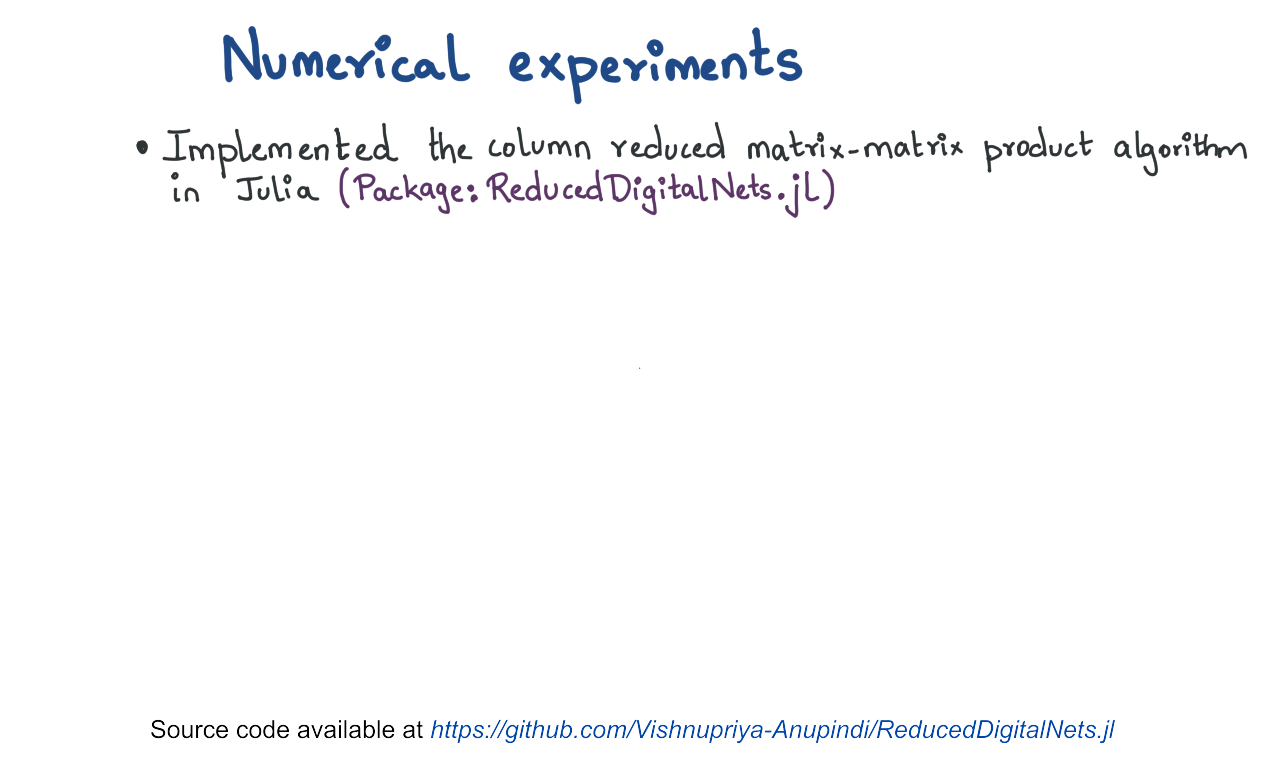 Numerical experiments
• Implemented the column reduced matrix-matrix product algorithm
in Julia (Package: ReducedDigitalNets.jl)
Source code available at https://github.com/Vishnupriya-Anupindi/ReducedDigitalNets.jl